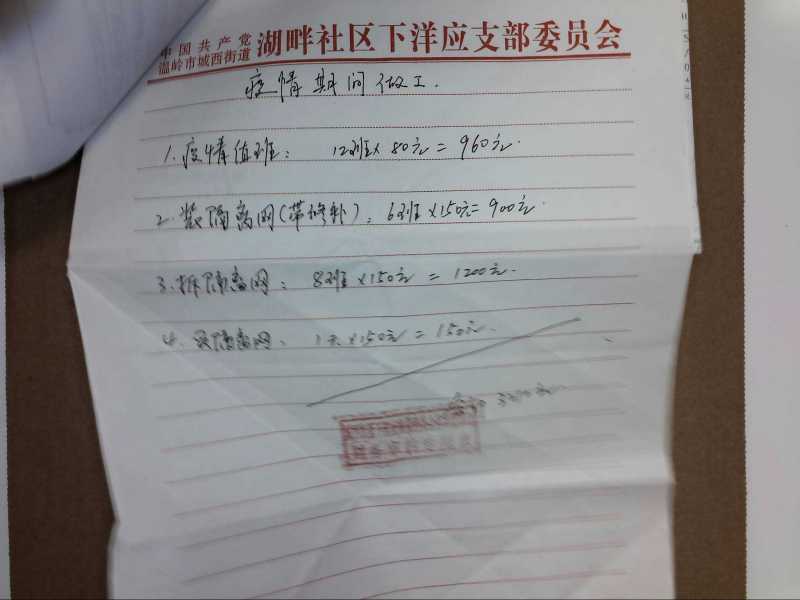 中国共产党
温岭市城西街道 湖畔社区下洋应支部委员会
疫情期间做工.
1. 疫情值班: 12班×80元=960元.
2. 装隔离网(带修补): 6班×150元=900元.
3. 拆隔离网: 8班×150元=1200元.
4. 隔离网. 1天×150元=150元.